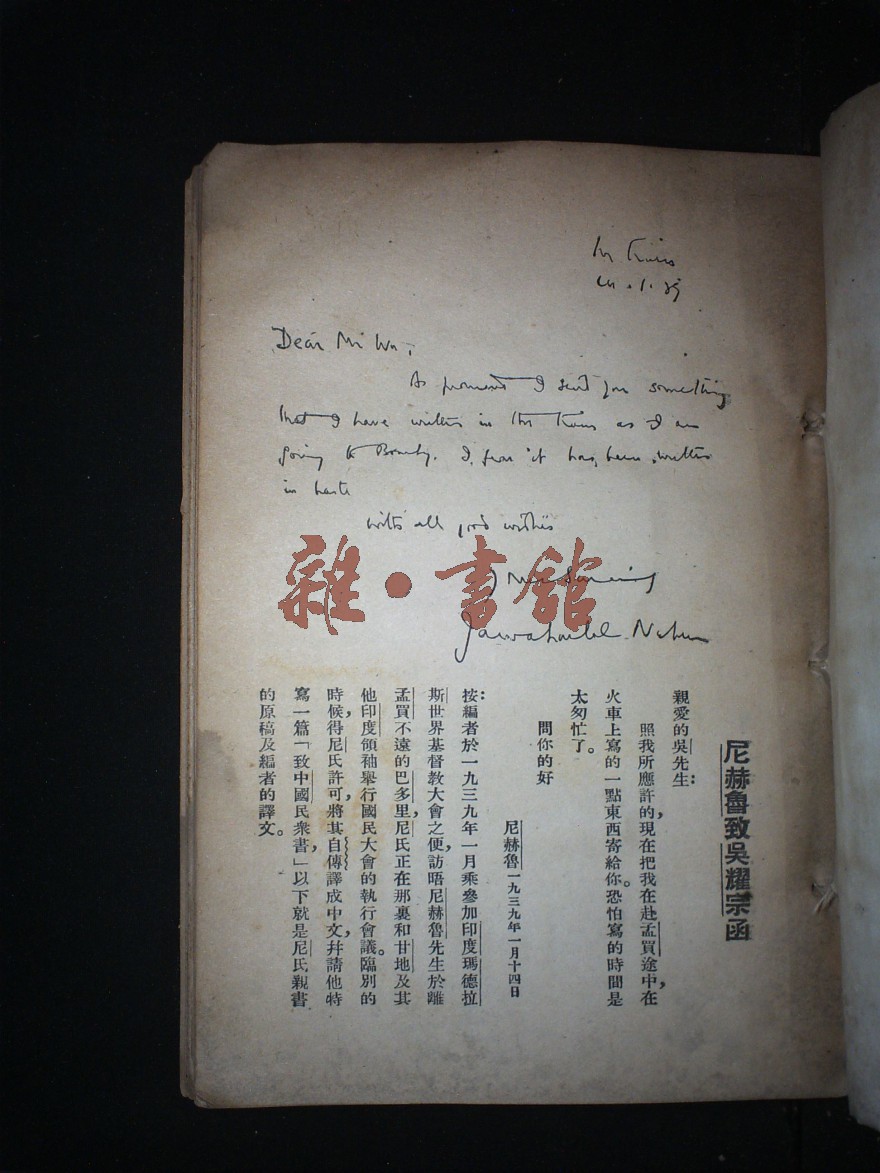 In train
14.1.39
Dear Mr Wu,
As promised I send you something
that I have written in the train as I am
going to Bombay. I fear it has been written
in haste
With all good wishes
Yours sincerely
Jawaharlal Nehru
雜·書館
尼赫魯致吳耀宗函
親愛的吳先生：
照我所應許的，現在把我在赴孟買途中，在
火車上寫的一點東西寄給你。恐怕寫的時間是
太匆忙了。
問你的好
尼赫魯一九三九年一月十四日
按編者於一九三九年一月乘參加印度瑪德拉
斯世界基督教大會之便，訪晤尼赫魯先生於離
孟買不遠的巴多里，尼氏正在那裏和甘地及其
他印度領袖舉行國民大會的執行會議。臨別的
時候，得尼氏許可，將其自傳譯成中文，幷請他特
寫一篇「致中國民衆書，」以下就是尼氏親書
的原稿及編者的譯文。